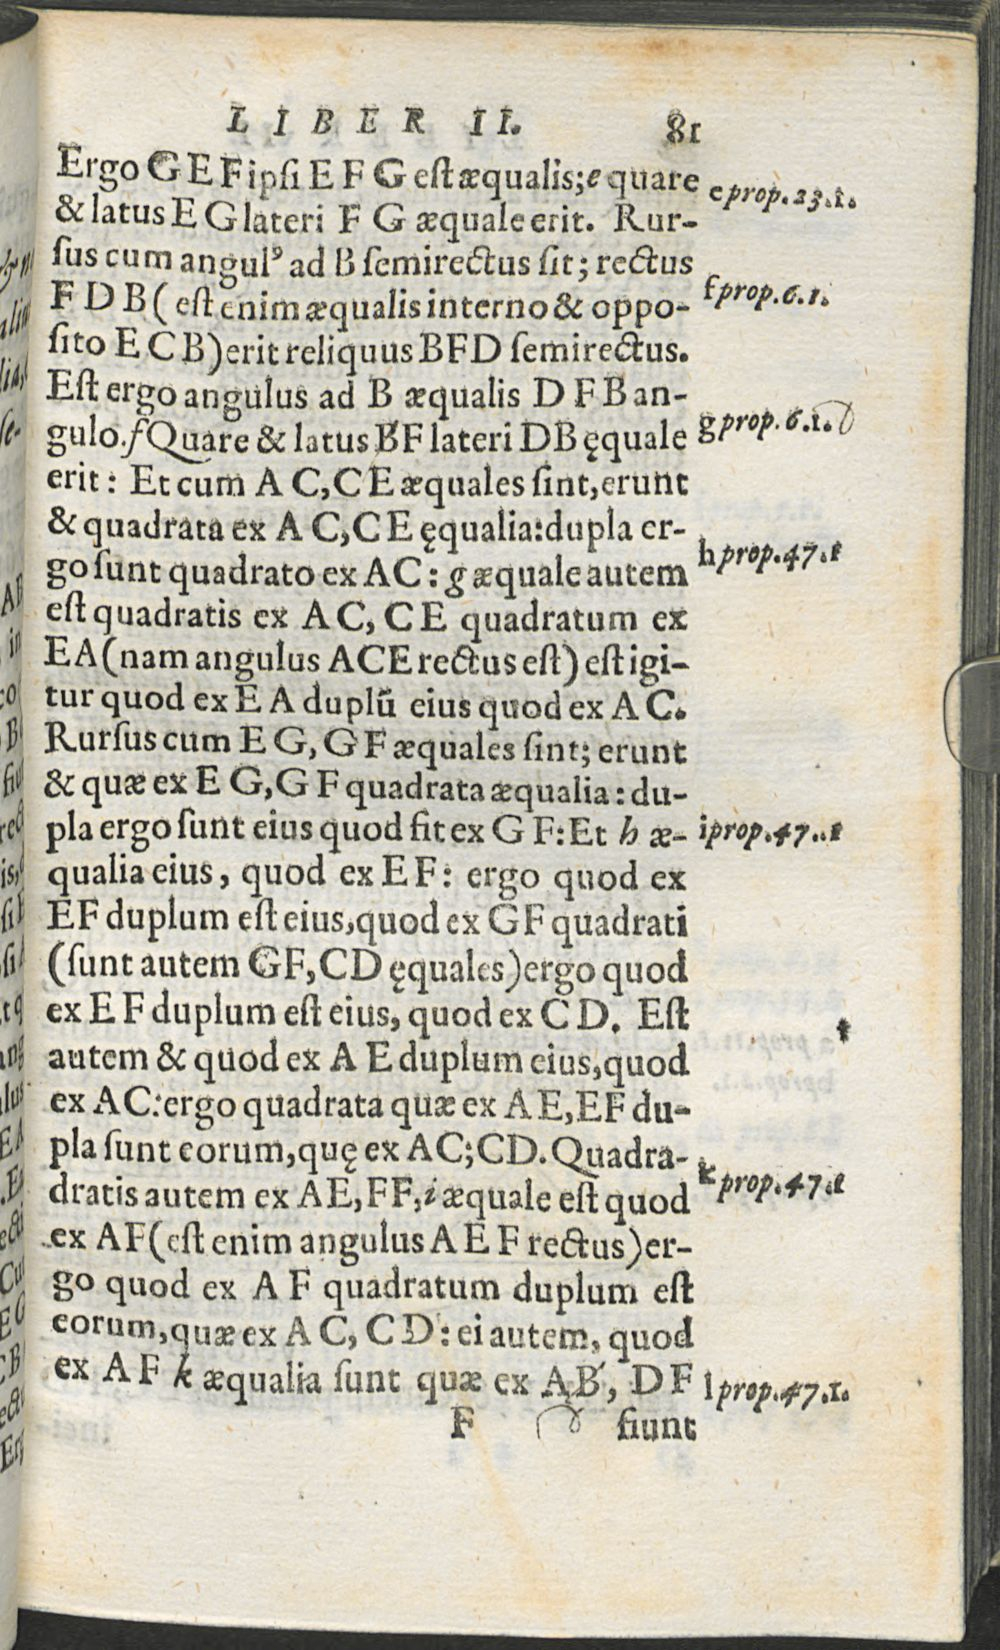 LIBER II. 81
Ergo G E F ipsi E F G est æqualis; e quare
& latus E G lateri F G æquale erit. Rur-
sus cum angulꝰ ad B semirectus sit; rectus
F D B ( est enim æqualis interno & oppo-
sito E C B) erit reliquus BFD semirectus.
Est ergo angulus ad B æqualis D F B an-
gulo. f Quare & latus BF lateri DB ęquale
erit: Et cum A C, C E æquales sint, erunt
& quadrata ex A C, C E ęqualia: dupla er-
go sunt quadrato ex AC: g æquale autem
est quadratis ex A C, C E quadratum ex
EA (nam angulus ACE rectus est) est igi-
tur quod ex E A duplū eius quod ex A C.
Rursus cum E G, G F æquales sint; erunt
& quæ ex E G, G F quadrata æqualia: du-
pla ergo sunt eius quod fit ex G F: Et h æ-
qualia eius, quod ex E F: ergo quod ex
EF duplum est eius, quod ex G F quadrati
(sunt autem GF, CD ęquales) ergo quod
ex E F duplum est eius, quod ex C D. Est
autem & quod ex A E duplum eius, quod
ex AC: ergo quadrata quæ ex A E, EF du-
pla sunt eorum, quę ex AC; CD. Quadra-
dratis autem ex AE, FF, i æquale est quod
ex AF (est enim angulus A E F rectus) er-
go quod ex A F quadratum duplum est
eorum, quæ ex A C, C D: ei autem, quod
ex A F k æqualia sunt quæ ex AB, DF
F fiunt
e prop. 23. 1.
f prop. 6. 1.
g prop. 6. 1.
h prop. 47. 1
i prop. 47. . 1
k prop. 47. 1
l prop. 47. 1.